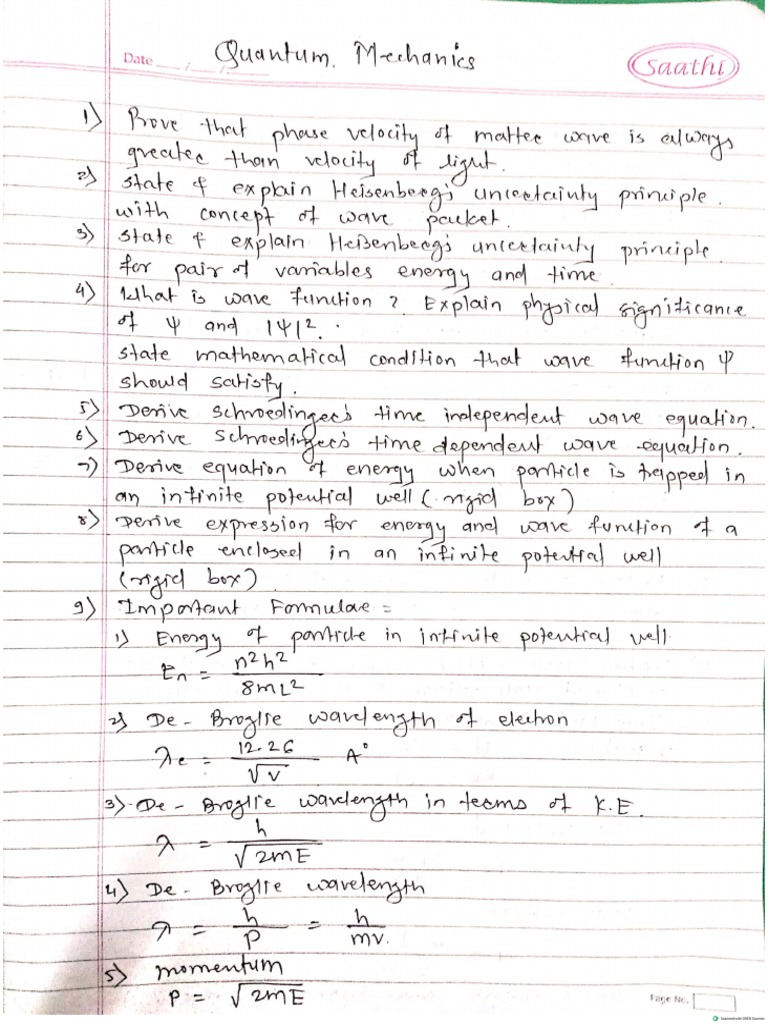 Quantum. Mechanics
Date __/__/__
Saathi
1) Prove that phase velocity of matter wave is always
greater than velocity of light.
2) State & explain Heisenberg's uncertainty principle.
with concept of wave packet.
3) State & explain Heisenberg's uncertainty principle.
for pair of variables energy and time
4) What is wave function? Explain physical significance
of Ψ and |Ψ|².
State mathematical condition that wave function Ψ
should satisfy.
5) Derive Schroedinger's time independent wave equation.
6) Derive Schroedinger's time dependent wave equation.
7) Derive equation of energy when particle is trapped in
an infinite potential well (rigid box)
8) Derive expression for energy and wave function of a
particle enclosed in an infinite potential well
(rigid box)
9) Important Formulae =
1) Energy of particle in infinite potential well
En = n²h² / 8mL²
2) De-Broglie wavelength of electron
λe = 12.26 / √v A°
3) De-Broglie wavelength in terms of K.E.
λ = h / √2mE
4) De-Broglie wavelength
λ = h / P = h / mv.
5) momentum
P = √2mE
Page No.
Scanned with OKEN Scanner